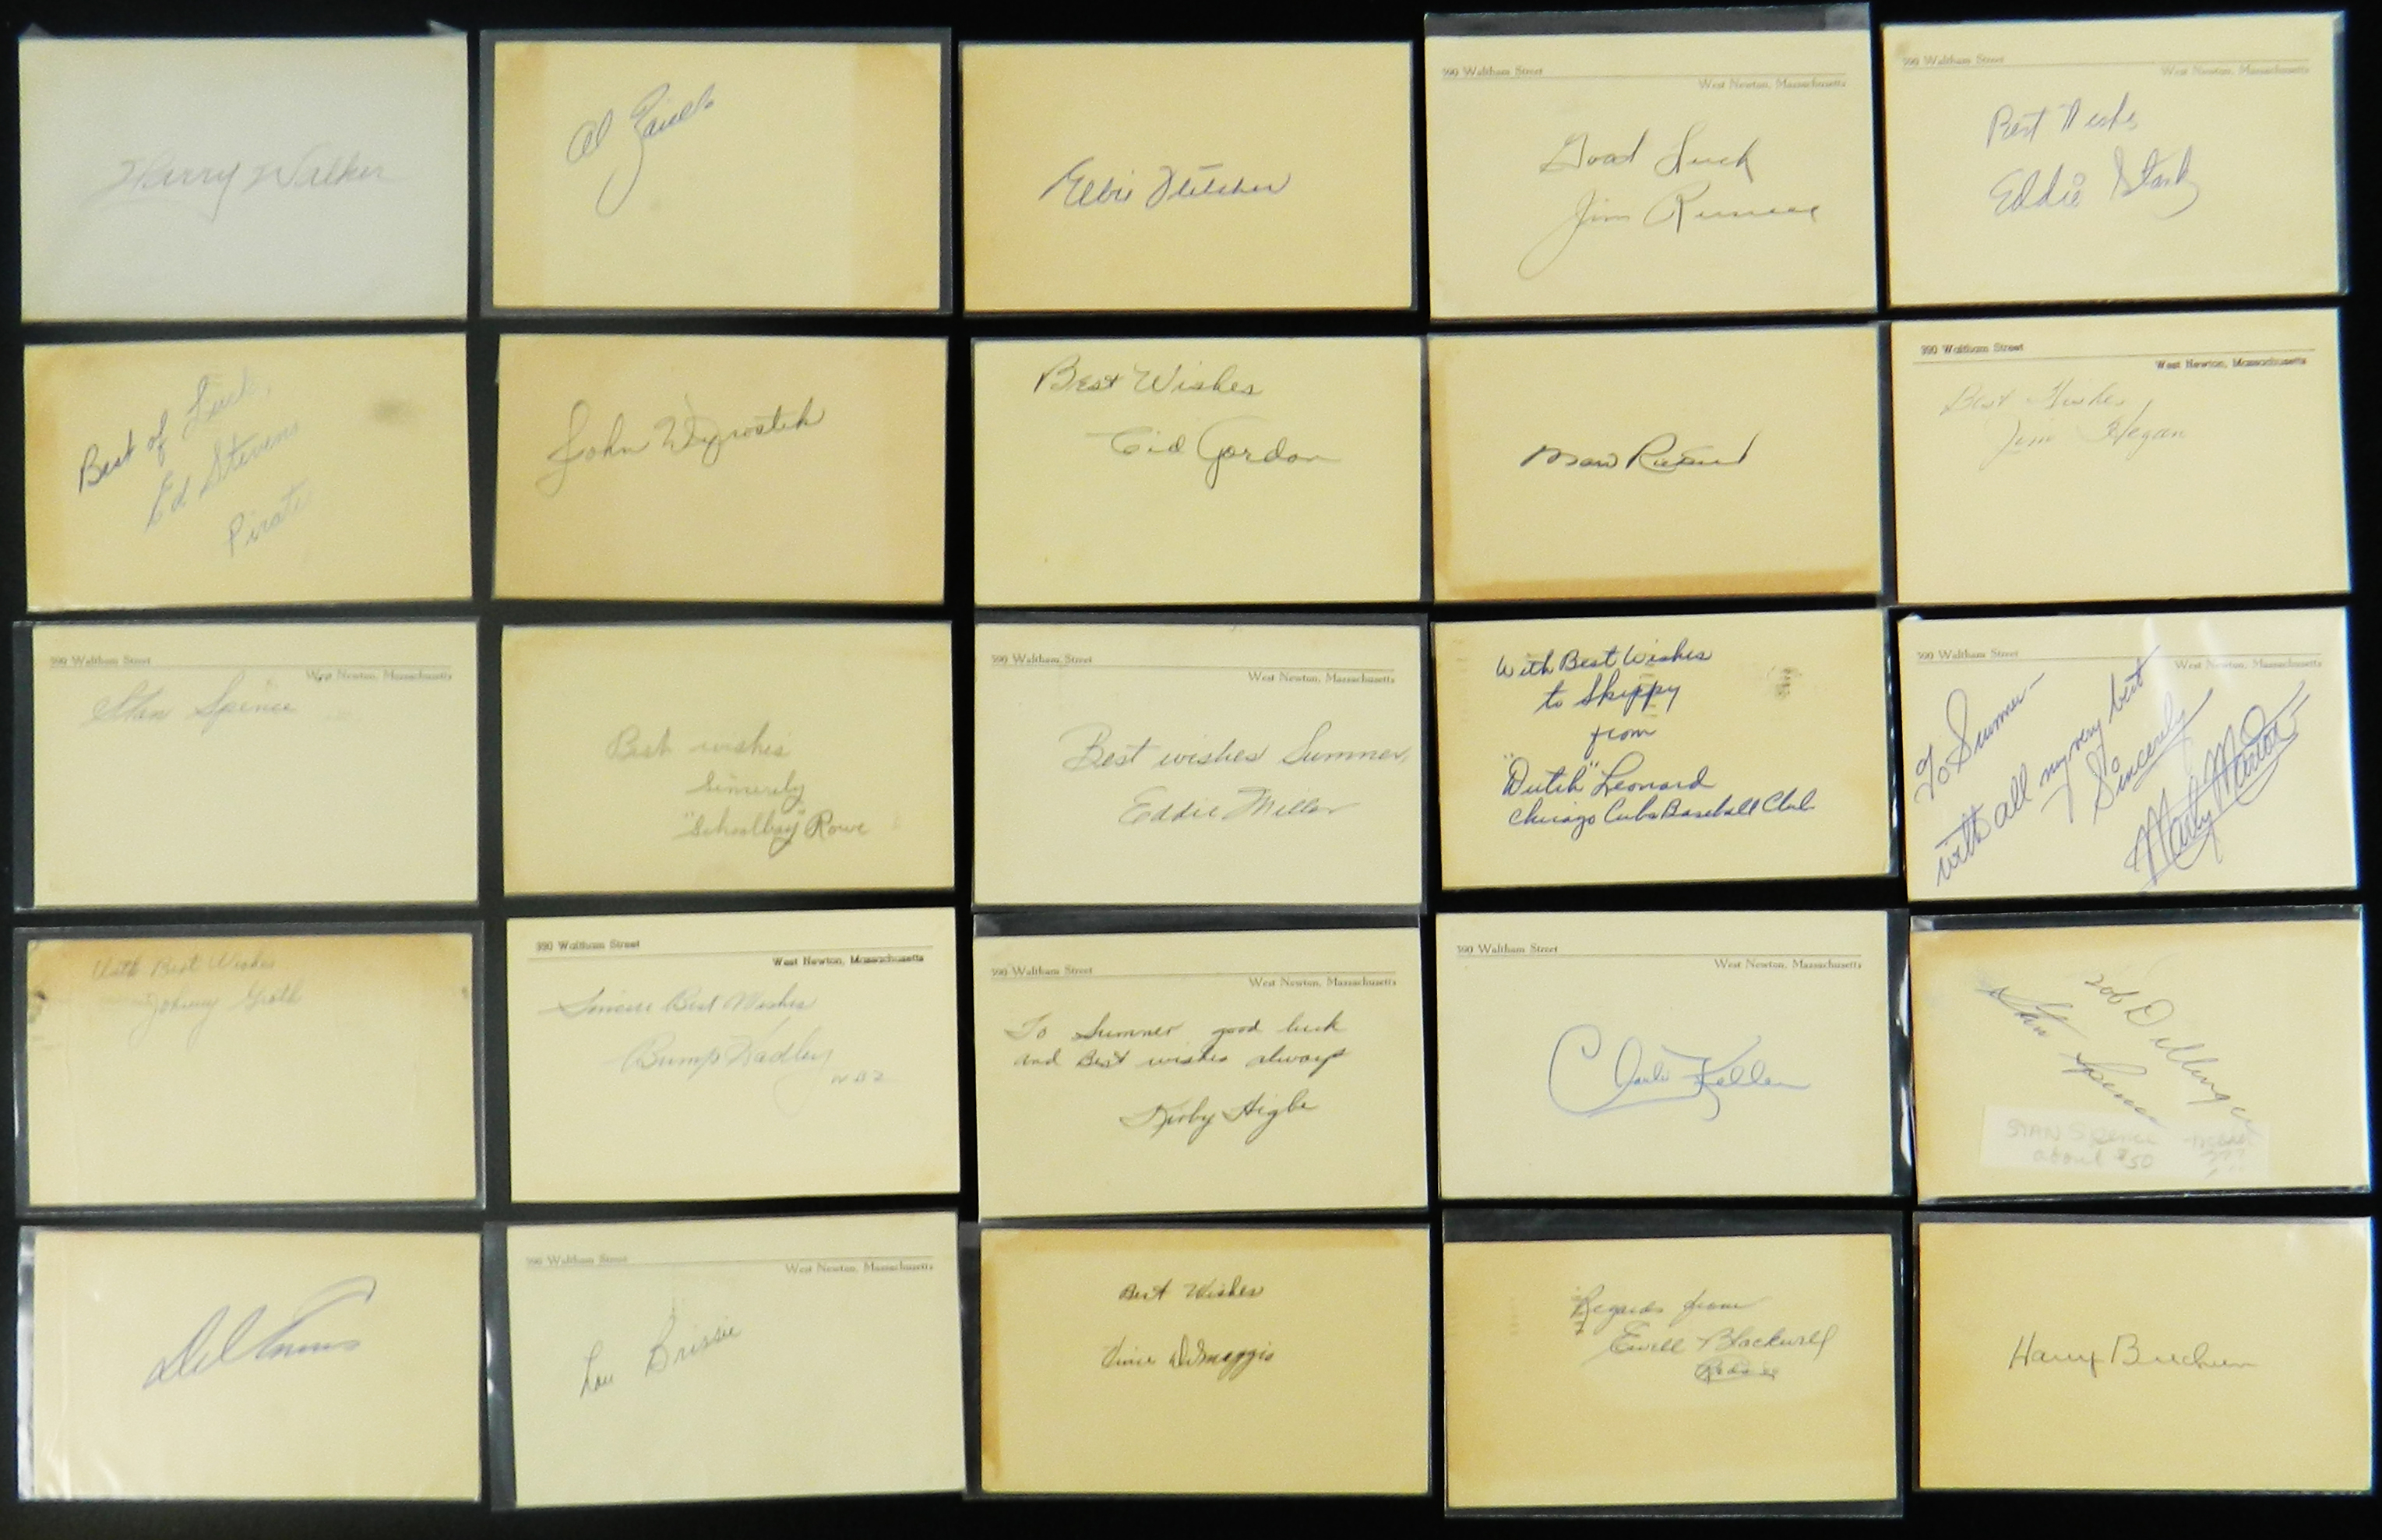 Harry Walker
Al Zarilla
Elbie Fletcher
390 Waltham Street
West Newton, Massachusetts
Good Luck
Jim Russell
390 Waltham Street
West Newton, Massachusetts
Best Wishes
Eddie
Best of Luck,
Ed Stevens
Pirates
John Wyrostek
Best Wishes
Sid Gordon
390 Waltham Street
West Newton, Massachusetts
Best Wishes,
Jim Hegan
390 Waltham Street
West Newton, Massachusetts
Stan Spence
Best wishes
Sincerely
"Schoolboy" Rowe
390 Waltham Street
West Newton, Massachusetts
Best wishes Sumner,
Eddie Miller
With Best Wishes
to Skippy
from
"Dutch" Leonard
Chicago Cubs Baseball Club
390 Waltham Street
West Newton, Massachusetts
To Sumner -
with all my very best
Sincerely
Marty Marion
With Best Wishes
Johnny Groth
390 Waltham Street
West Newton, Massachusetts
Sincere Best Wishes
Bump Hadley
WBZ
390 Waltham Street
West Newton, Massachusetts
To Sumner good luck
and Best wishes always
Kirby Higbe
390 Waltham Street
West Newton, Massachusetts
Charlie Keller
Bob Dillinger
Stan Spence
STAN Spence
about $50
Del Ennis
390 Waltham Street
West Newton, Massachusetts
Lou Brissie
Best Wishes
Vince DiMaggio
Regards from
Ewell Blackwell
Harry Brecheen